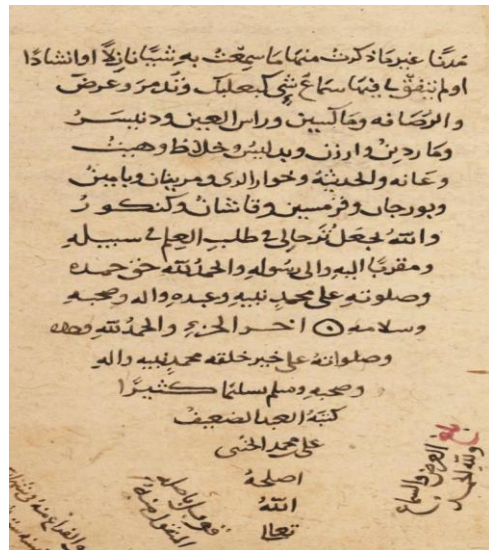 مدنا غير ما ذكرت منها ما سمعت به شيئا نازلا او انشادا
او لم يتفق لي فيها سماع شي كبعلبك وتدمر وعرض
والرصافه وماكسين وراس العين ودنيسر
وماردين وارزن وبدليس وخلاط وهيت
وعانه والحديثه وخوار الري و
وبورجان وقرمسين وقاشان وكنكور
والله يجعل ترحالي في طلب العلم في سبيله
ومقربا اليه والى رسوله والحمد لله حق حمده
وصلوته على محمد نبيه وعبده واله وصحبه
وسلامه اخر الجزء والحمد لله وحده
وصلواته على خير خلقه محمد نبيه واله
وصحبه وسلم تسليما كثيرا
كتبه العبد الضعيف
على محمد الحنفى
اصلحه
الله
تعالى
بلغ العرض والسماع
ولله الحمد
قوبل باصله
المنقول منه